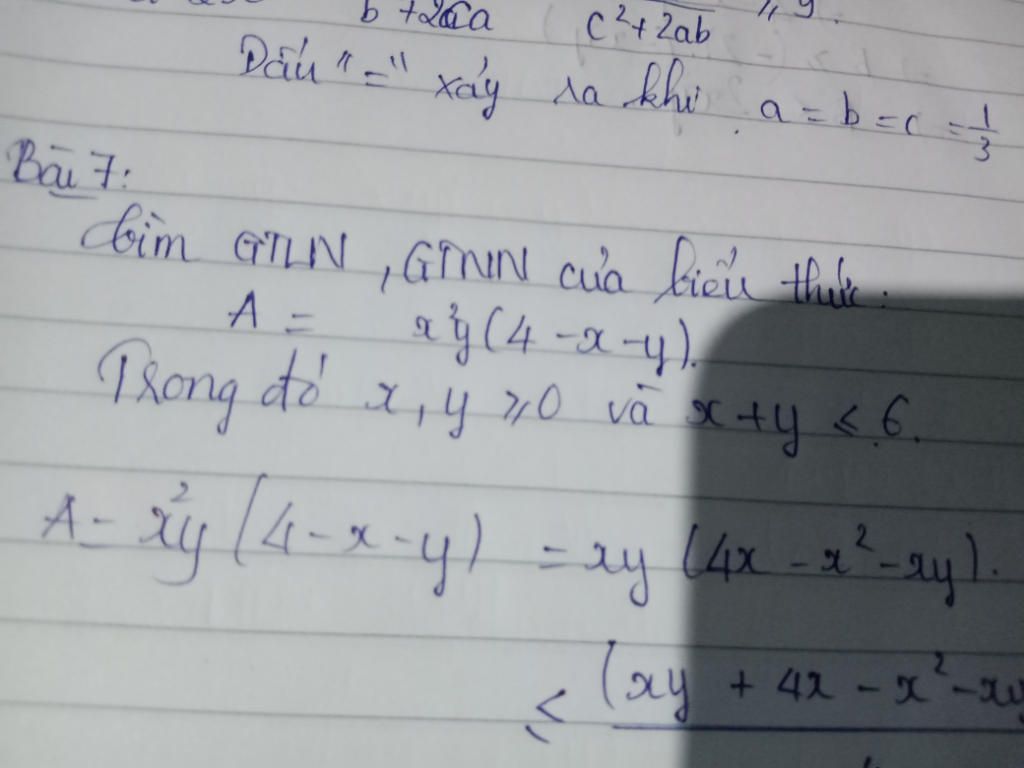 b + 2ca c² + 2ab 9.
Dấu "=" xảy ra khi a = b = c = 1/3
Bài 7:
Tìm GTLN, GTNN của biểu thức:
A = x²y(4 - x - y).
Trong đó x, y ≥ 0 và x + y ≤ 6.
A = x²y (4 - x - y) = xy (4x - x² - xy).
≤ (xy + 4x - x² - xy